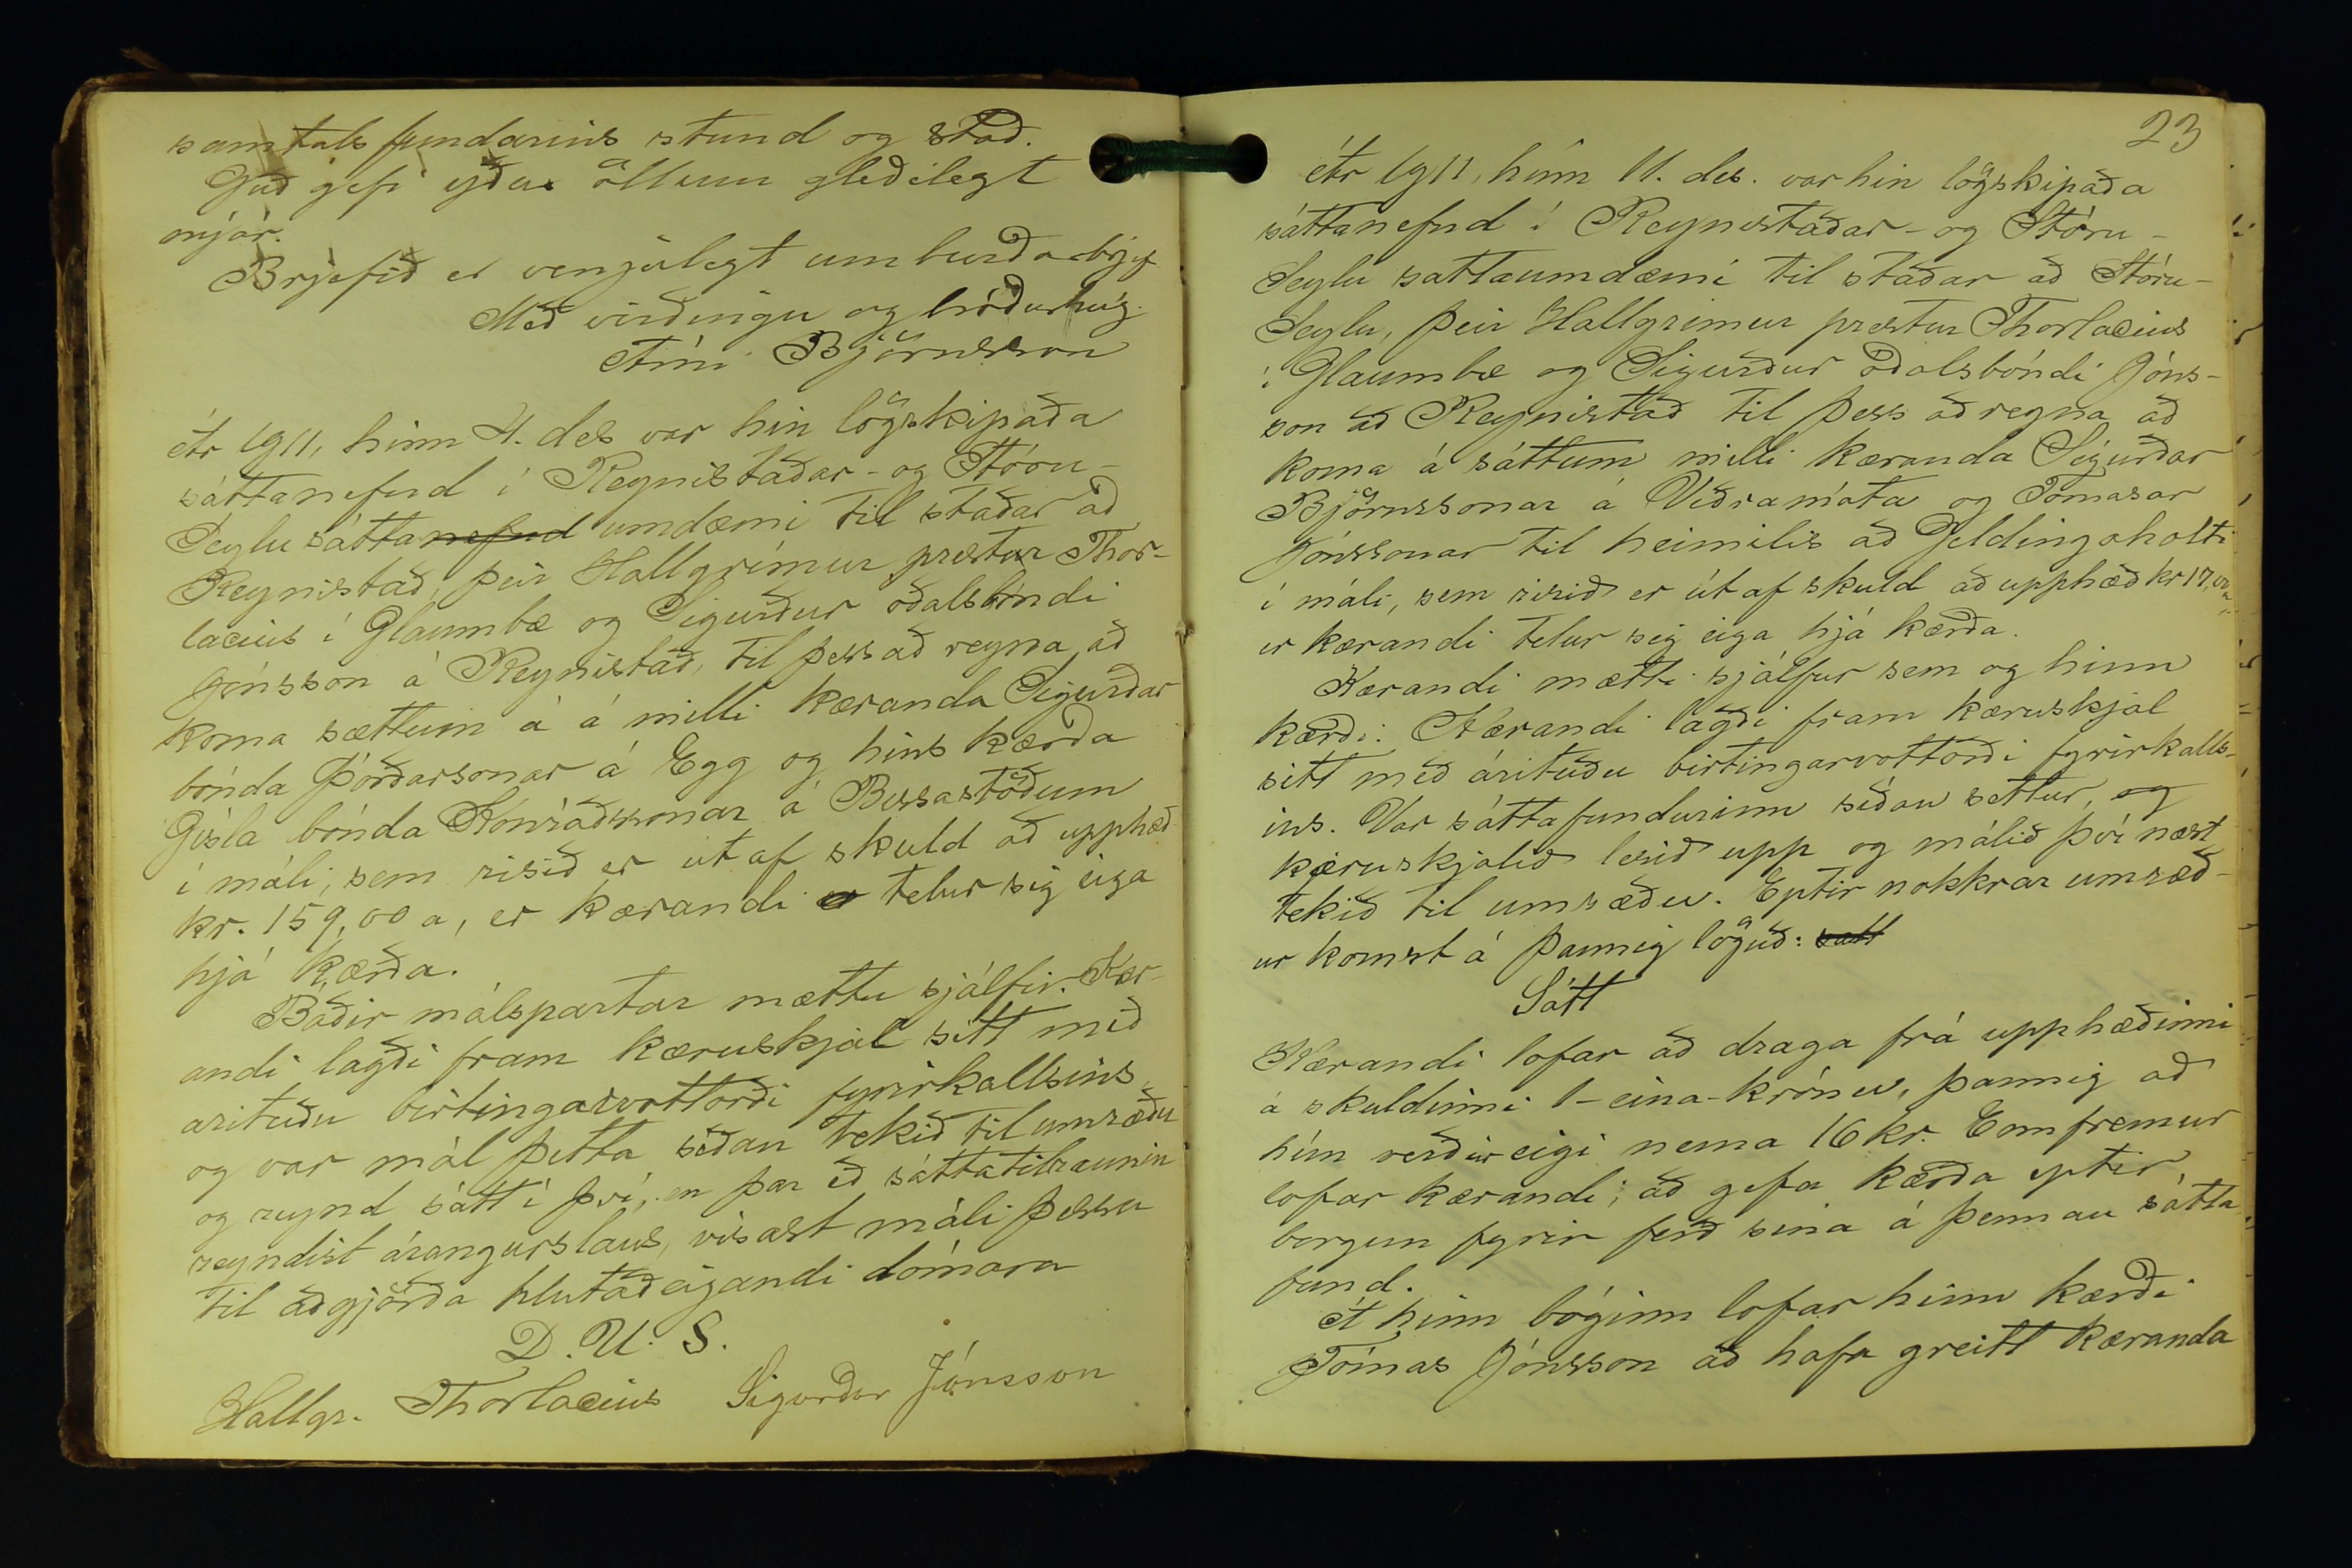 samtals fundarins stund og stað.
Guð gefi yður öllum gleðilegt
nýár.
Brjefið er venjulegt umburðarbrjef
Með virðingu og bróðurhug.
Árni Björnsson
Ár 1911, hinn 4. des var hin lögskipaða
sáttanefnd í Reynistaðar- og Stóru-
Seylu sáttanefnd umdæmi til staðar að
Reynistað, þeir Hallgrímur prestur Thor-
lacius í Glaumbæ og Sigurður óðalsbóndi
Jónsson á Reynistað, til þess að reyna að
koma sættum á á milli kæranda Sigurðar
bónda Þórðarsonar á Egg og hins kærða
Gísla bónda Konráðssonar á Bessastöðum
í máli, sem risið er út af skuld að upphæð
kr. 159,00 a, er kærandi telur sig eiga
hjá kærða.
Báðir málspartar mættu sjálfir. Kær-
andi lagði fram kæruskjal sitt með
árituðu birtingarvottorði fyrirkallsins
og var mál þetta síðan tekið til umræðu
og reynd sátt í því, en þar eð sáttatilraunin
reyndist árangurslaus, vísast máli þessu
til aðgjörða hlutaðeigandi dómara
D. U. S.
Hallgr. Thorlacius Sigurður Jónsson
23
Ár 1911, hinn 11. des. var hin lögskipaða
sáttanefnd í Reynistaðar- og Stóru-
Seylu sáttaumdæmi til staðar að Stóru-
Seylu, þeir Hallgrímur prestur Thorlacius
í Glaumbæ og Sigurður óðalsbóndi Jóns-
son að Reynistað til þess að reyna að
koma á sáttum milli kæranda Sigurðar
Björnssonar á Víðramóta og Tómasar
Jónssonar til heimilis að Geldingaholti
í máli, sem risið er út af skuld að upphæð kr 17,00 a
er kærandi telur sig eiga hjá kærða.
Kærandi mætti sjálfur sem og hinn
kærði. Kærandi lagði fram kæruskjal
sitt með árituðu birtingarvottorði fyrirkalls-
ins. Var sáttafundurinn síðan settur, og
kæruskjalið lesið upp og málið því næst
tekið til umræðu. Eptir nokkrar umræð-
ur komst á þannig löguð: sátt
Sátt
Kærandi lofar að draga frá upphæðinni
á skuldinni 1-eina-krónu, þannig að
hún verður eigi nema 16 kr. Ennfremur
lofar kærandi, að gefa kærða eptir
borgun fyrir ferð sína á þennan sátta
fund.
Á hinn bóginn lofar hinn kærði
Tómas Jónsson að hafa greitt kæranda